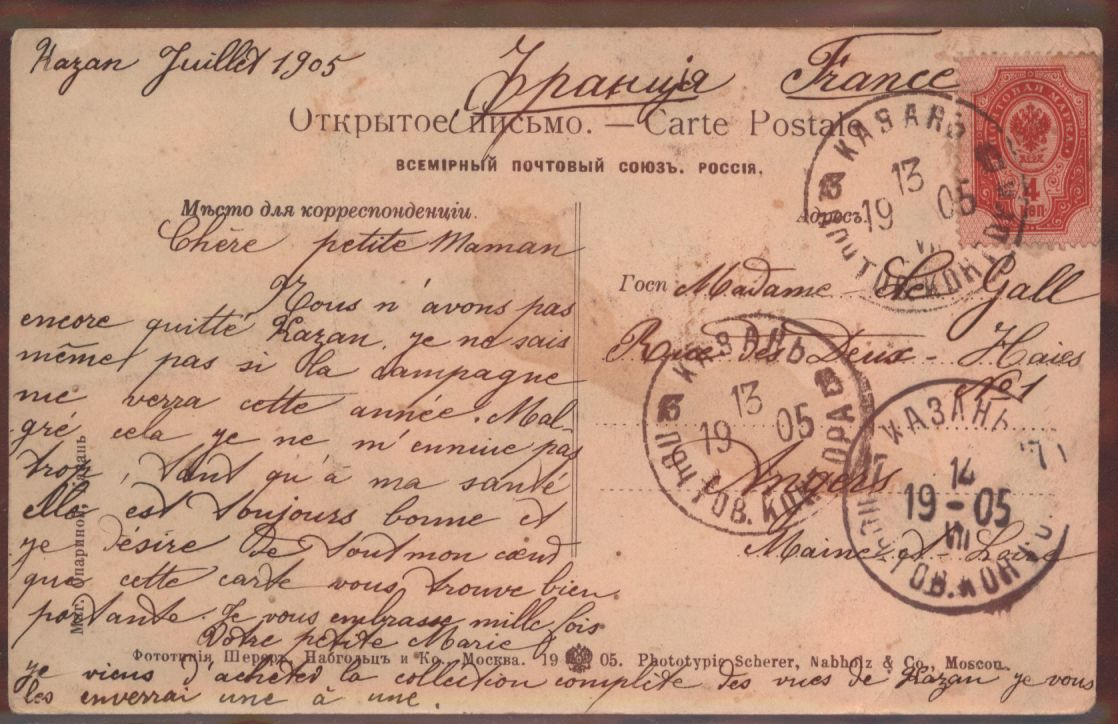 Kazan Juillet 1905
Франція France
Открытое письмо. — Carte Postale
ВСЕМІРНЫЙ ПОЧТОВЫЙ СОЮЗЪ. РОССІЯ.
Мѣсто для корреспонденціи.
Адресъ.
Chère petite Maman
Nous n'avons pas
encore quitté Kazan, je ne sais
même pas si la campagne
me verra cette année. Mal-
gré cela je ne m'ennuie pas
trop, tant qu'à ma santé
Elle est toujours bonne et
je désire de tout mon cœur
que cette carte vous trouve bien
portante. Je vous embrasse mille fois
Votre petite Marie
je viens d'acheter la collection complète des vues de Kazan je vous
les enverrai une à une.
Госп Madame Le Gall
Rue des Deux-Haies
No 1
Angers
Maine et Loire
ПОЧТОВАЯ МАРКА.
4
КОП
КАЗАНЬ
13
19 05
VII
ПОЧТОВ. КОНТОРА
КАЗАНЬ
13
19 05
ПОЧТОВ. КОНТОРА
КАЗАНЬ
14
19-05
VII
ПОЧТОВ. КОНТО
Маг. Опариной Казань
Фототипія Шереръ, Набгольцъ и Ко., Москва. 19 05. Phototypie Scherer, Nabholz & Co., Moscou.